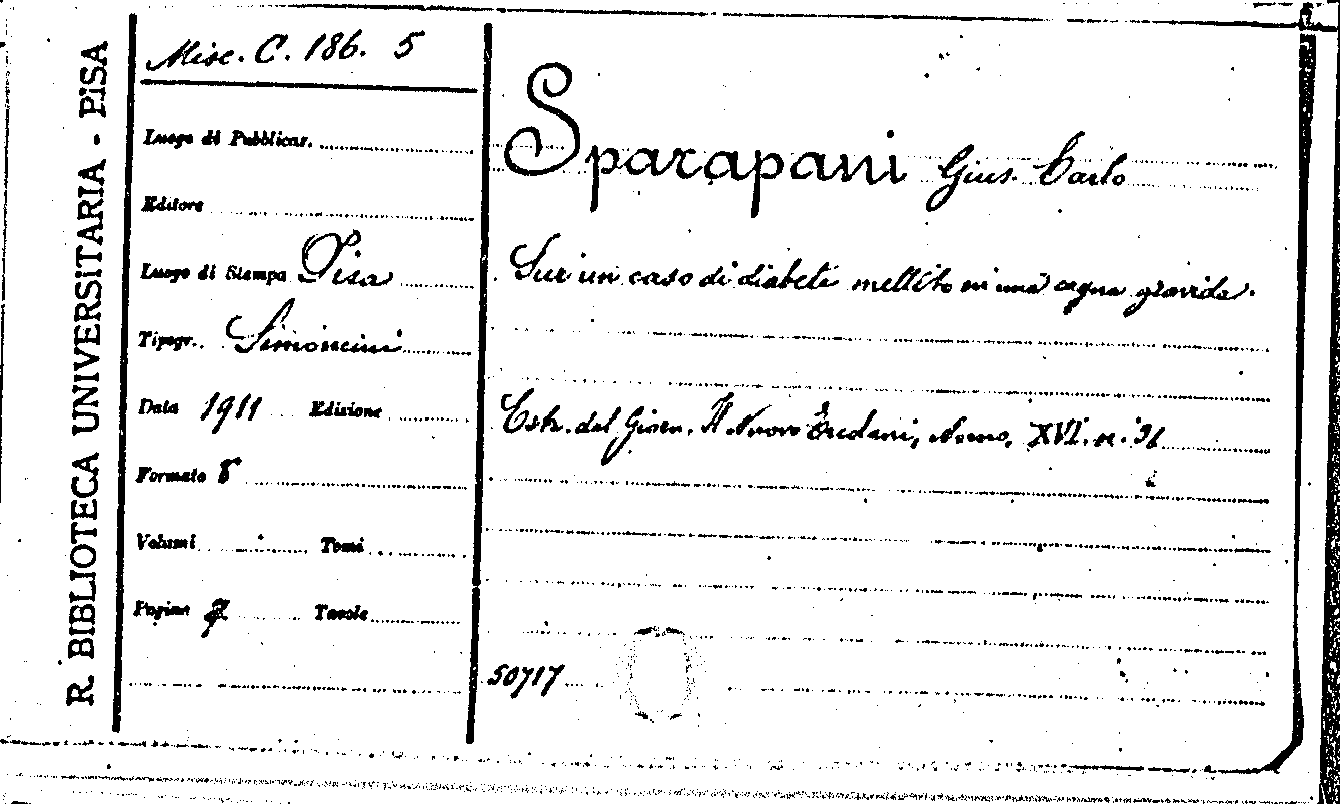 R. BIBLIOTECA UNIVERSITARIA - PISA
Misc. C. 186. 5
Luogo di Pubblicaz.
Editore
Luogo di Stampa Pisa
Tipogr. Simoncini
Data 1911 Edizione
Formato 8
Volumi Tomi
Pagine 7 Tavole
Sparapani Gius. Carlo
Sur un caso di diabete mellito in una cagna gravida.
Estr. dal Giorn. Il Nuovo Ercolani, Anno, XVI. n.
50717